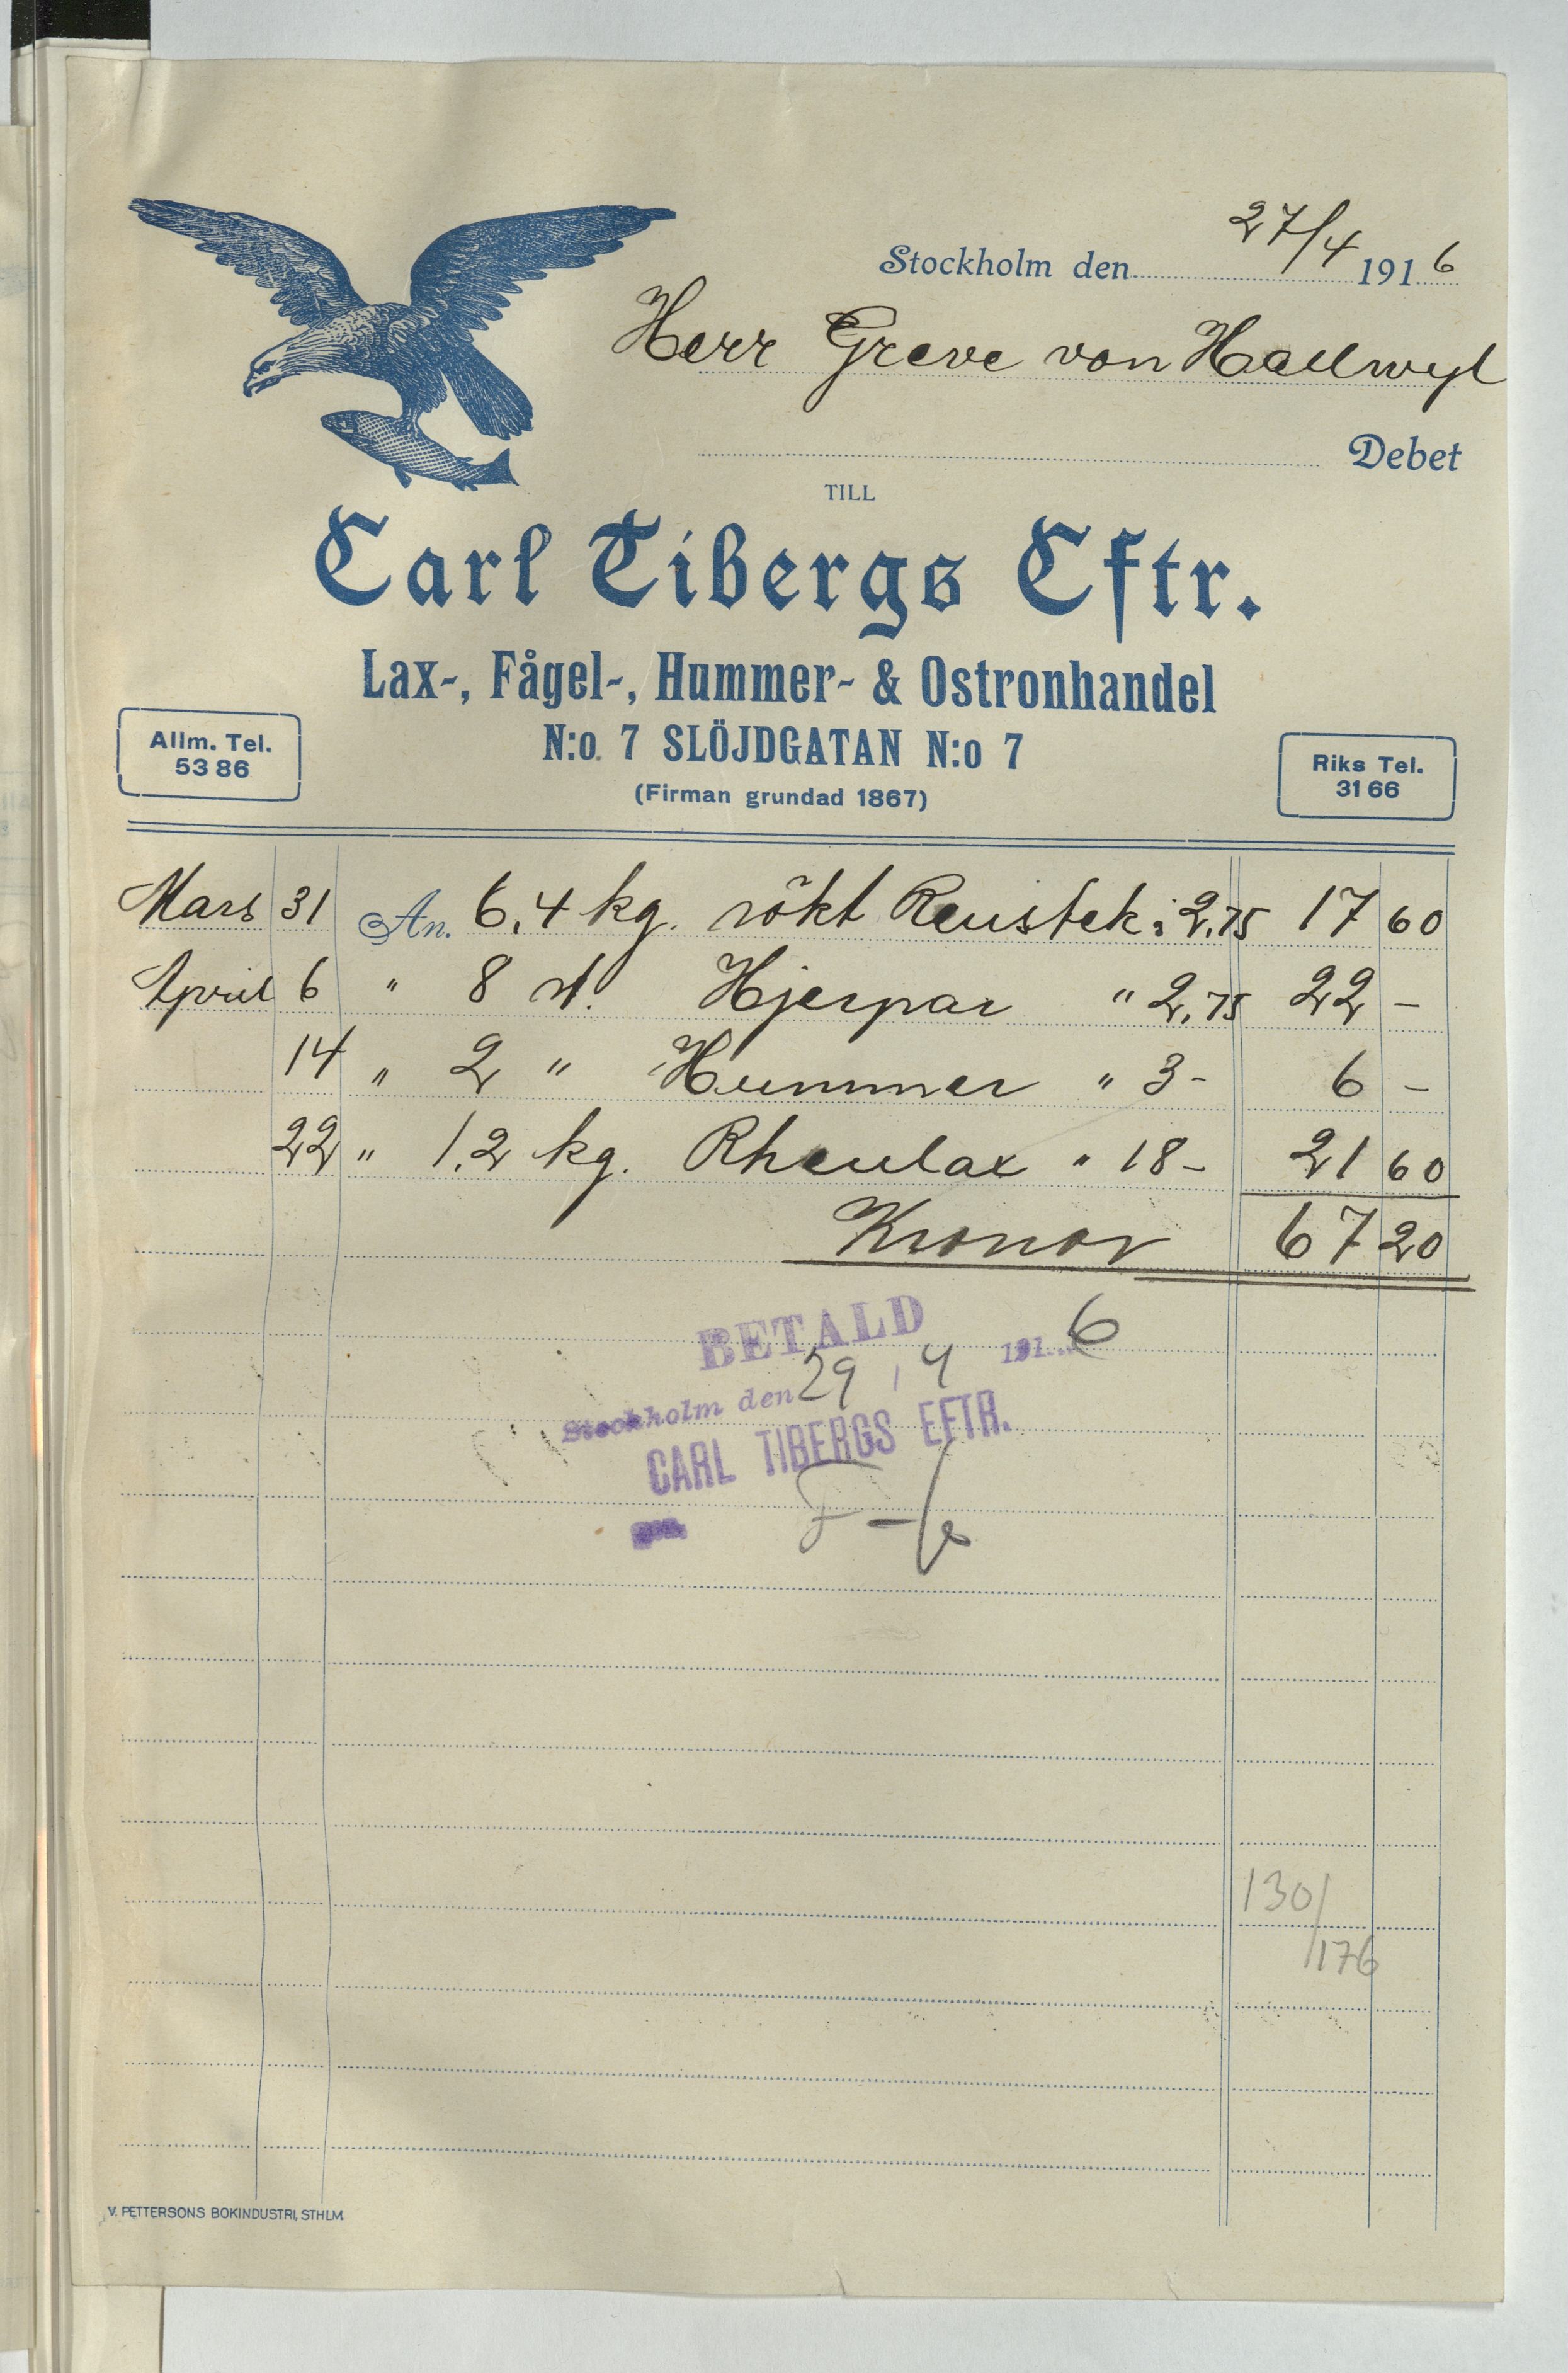 Stockholm den 27/4 1916
Herr Greve von Hallwyl
Debet
TILL
Carl Tibergs Eftr.
Lax-, Fågel-, Hummer- & Ostronhandel
N:o 7 SLÖJDGATAN N:o 7
(Firman grundad 1867)
Allm. Tel.
53 86
Riks Tel.
31 66
Mars 31 An. 6,4 kg. rökt Renstek à 2,75 17 60
April 6 " 8 st. Hjerpar " 2,75 22 -
14 " 2 " Hummer " 3- 6 -
22 " 1,2 kg. Rhenlax " 18- 21 60
Kronor 67 20
BETALD
Stockholm den 29 / 4 191 6
CARL TIBERGS EFTR.
130/176
V. PETTERSONS BOKINDUSTRI, STHLM